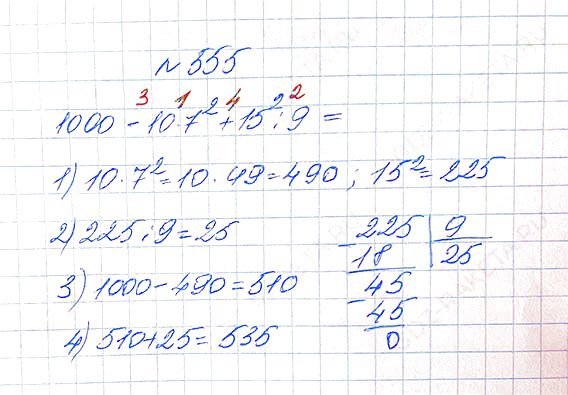 № 555
3 1 4 2
1000 - 10·7² + 15² : 9 =
1) 10·7² = 10·49 = 490 ; 15² = 225
2) 225 : 9 = 25
3) 1000 - 490 = 510
4) 510 + 25 = 535
225 | 9
- 18 | 25
45
- 45
0